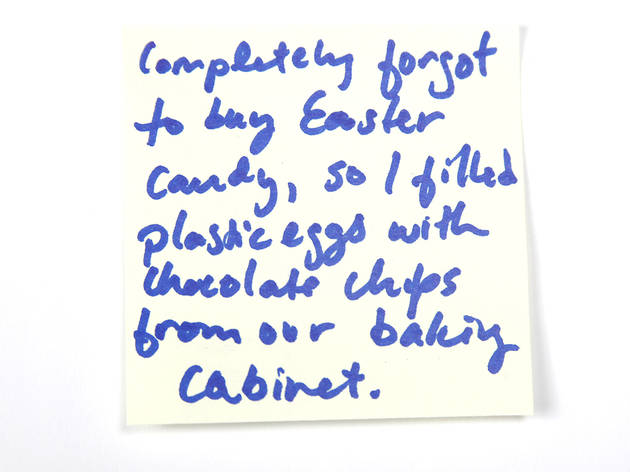 Completely forgot
to buy Easter
candy, so I filled
plastic eggs with
chocolate chips
from our baking
cabinet.